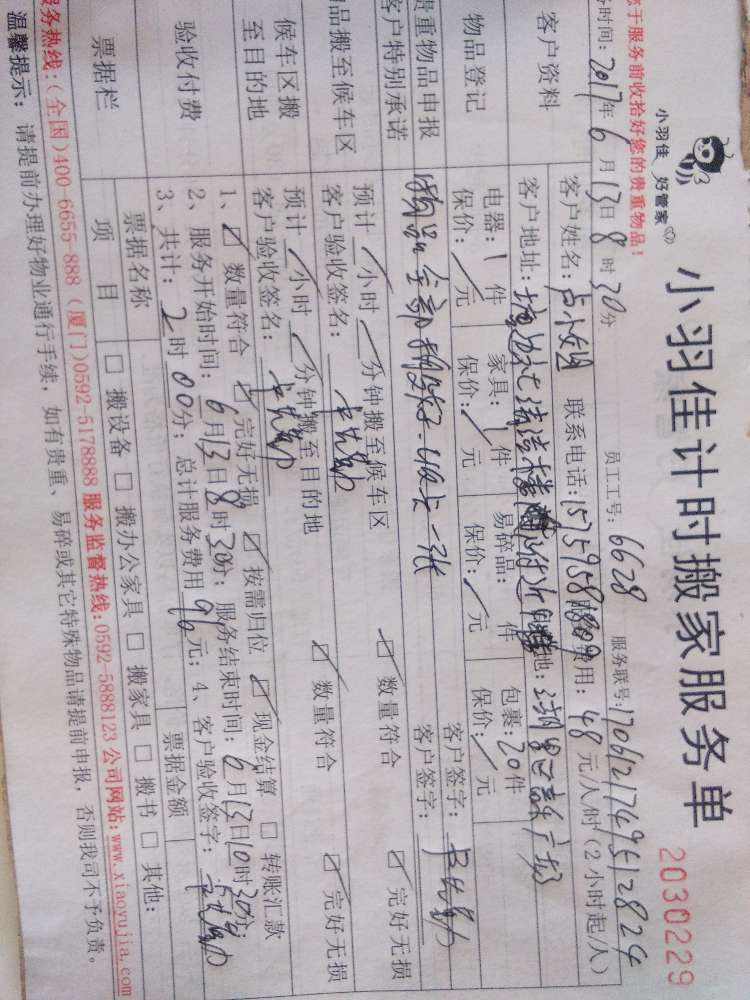 小羽佳 好管家
小羽佳计时搬家服务单
2030229
员工工号: 6628 服务联号: 1706121749512824
您于服务前收拾好您的贵重物品!
时间: 2017年6月13日8时30分
48元/人/时 (2小时起/人)
客户资料
客户姓名: 卢小姐 联系电话:
客户地址:
物品登记
电器: 1件 家具: 1件 易碎品: 件 包裹: 20件
保价: 元 保价: 元 保价: 元 保价: 元
贵重物品申报
客户特别承诺
客户签字:
客户签字:
物品搬至候车区
预计 小时 分钟搬至候车区 数量符合 完好无损
客户验收签名:
候车区搬
至目的地
预计 小时 分钟搬至目的地 数量符合 完好无损
客户验收签名:
验收付费
1、 数量符合 完好无损 按需归位 现金结算 转账汇款
2、服务开始时间: 6月13日8时30分; 服务结束时间: 6月13日10时30分;
3、共计: 2时00分; 总计服务费用 96元; 4、客户验收签字:
票据栏
票据名称 票据金额
项目 搬设备 搬办公家具 搬家具 搬书 其他:
服务热线:(全国)400-6655-888 (厦门)0592-5178888 服务监督热线:0592-5888123 公司网站:www.xiaoyujia.com
温馨提示: 请提前办理好物业通行手续, 如有贵重、易碎或其它特殊物品请提前申报, 否则我司不予负责。